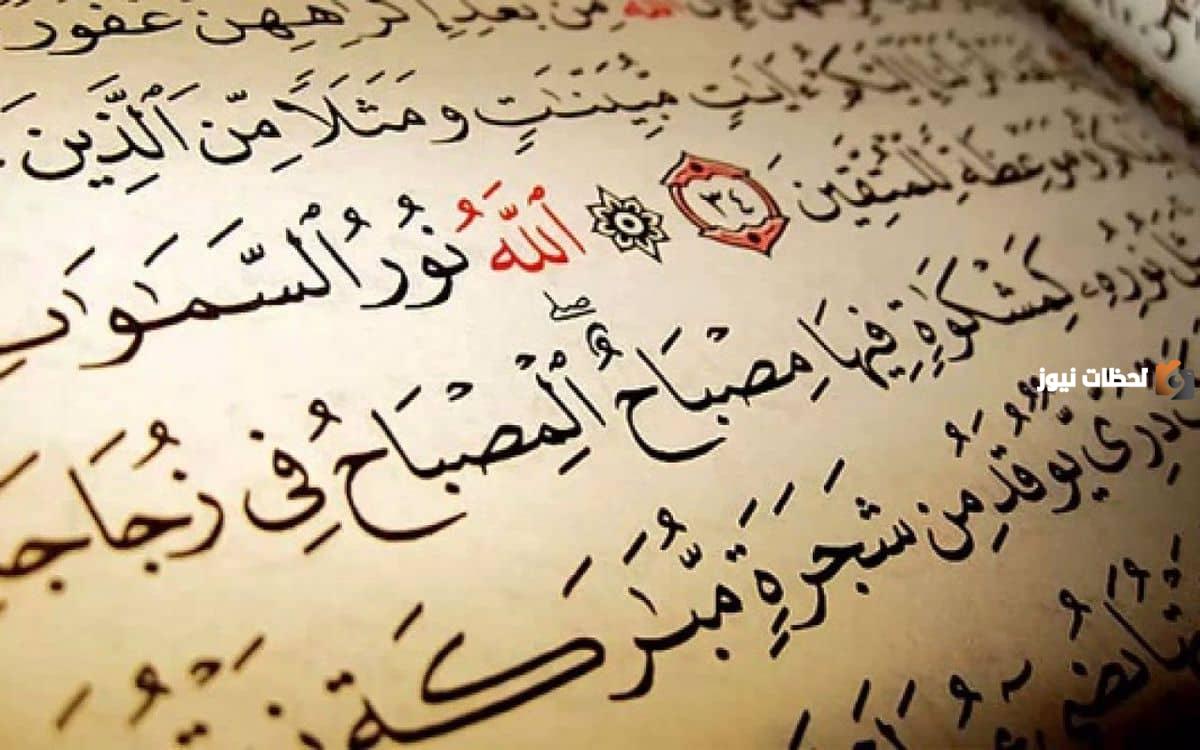 مِنۢ بَعْدِ إِكْرَٰهِهِنَّ غَفُورٌ
ءَايَٰتٍ مُّبَيِّنَٰتٍ وَمَثَلًا مِّنَ ٱلَّذِينَ
وَمَوْعِظَةً لِّلْمُتَّقِينَ ٣٤ ٱللَّهُ نُورُ ٱلسَّمَٰوَٰتِ
نُورِهِۦ كَمِشْكَوٰةٍ فِيهَا مِصْبَاحٌ ۖ ٱلْمِصْبَاحُ فِى
دُرِّىٌّ يُوقَدُ مِن شَجَرَةٍ مُّبَٰرَكَةٍ
لحظات نيوز